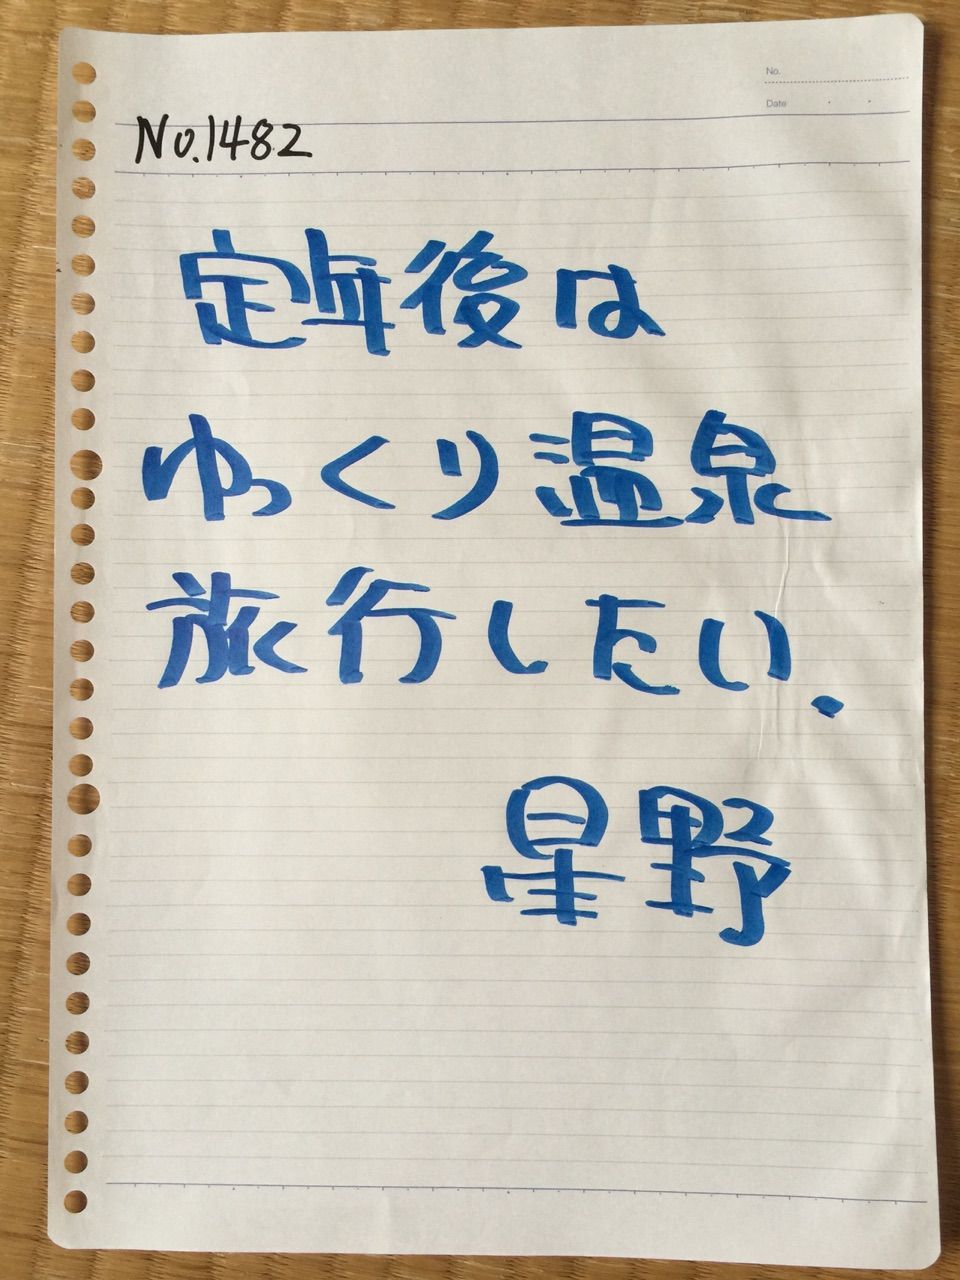 No.
Date
No.1482
定年後は
ゆっくり温泉
旅行したい.
星野